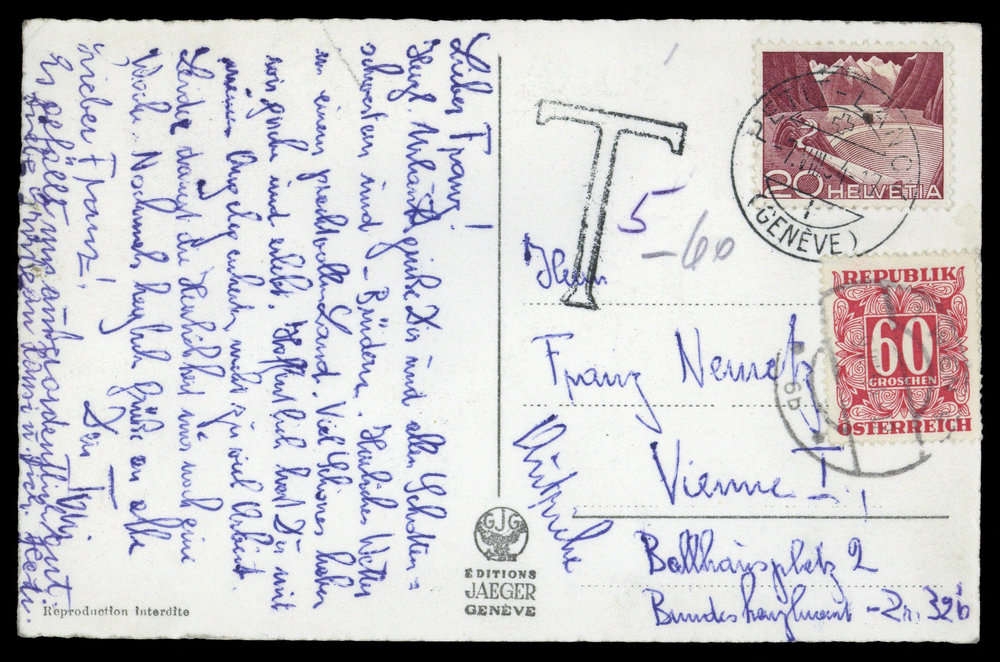 Lieber Franz!
Herzl. Urlaubsgrüße Dir und allen Schotten-
schwestern und -Brüdern. Herrliches Wetter
in einem prachtvollen Land. Viel Schönes haben
wir gesehen und erlebt. Hoffentlich hast Du mit
meinen Angelegenheiten nicht zu viel Arbeit.
Leider drängt die Herrlichkeit nur noch eine
Woche. Nochmals herzlich Grüße an alle
Dein
Lieber Franz!
Es gefällt uns außerordentlich gut.
Liebe Grüße
T
5
-60
Herrn
Franz Nemetz
Vienne I.,
Autriche
Ballhausplatz 2
Bundeskanzleramt - Zi. 32b
20 HELVETIA
(GENÈVE)
REPUBLIK
60
GROSCHEN
ÖSTERREICH
6b
GJG
ÉDITIONS
JAEGER
GENÈVE
Reproduction interdite